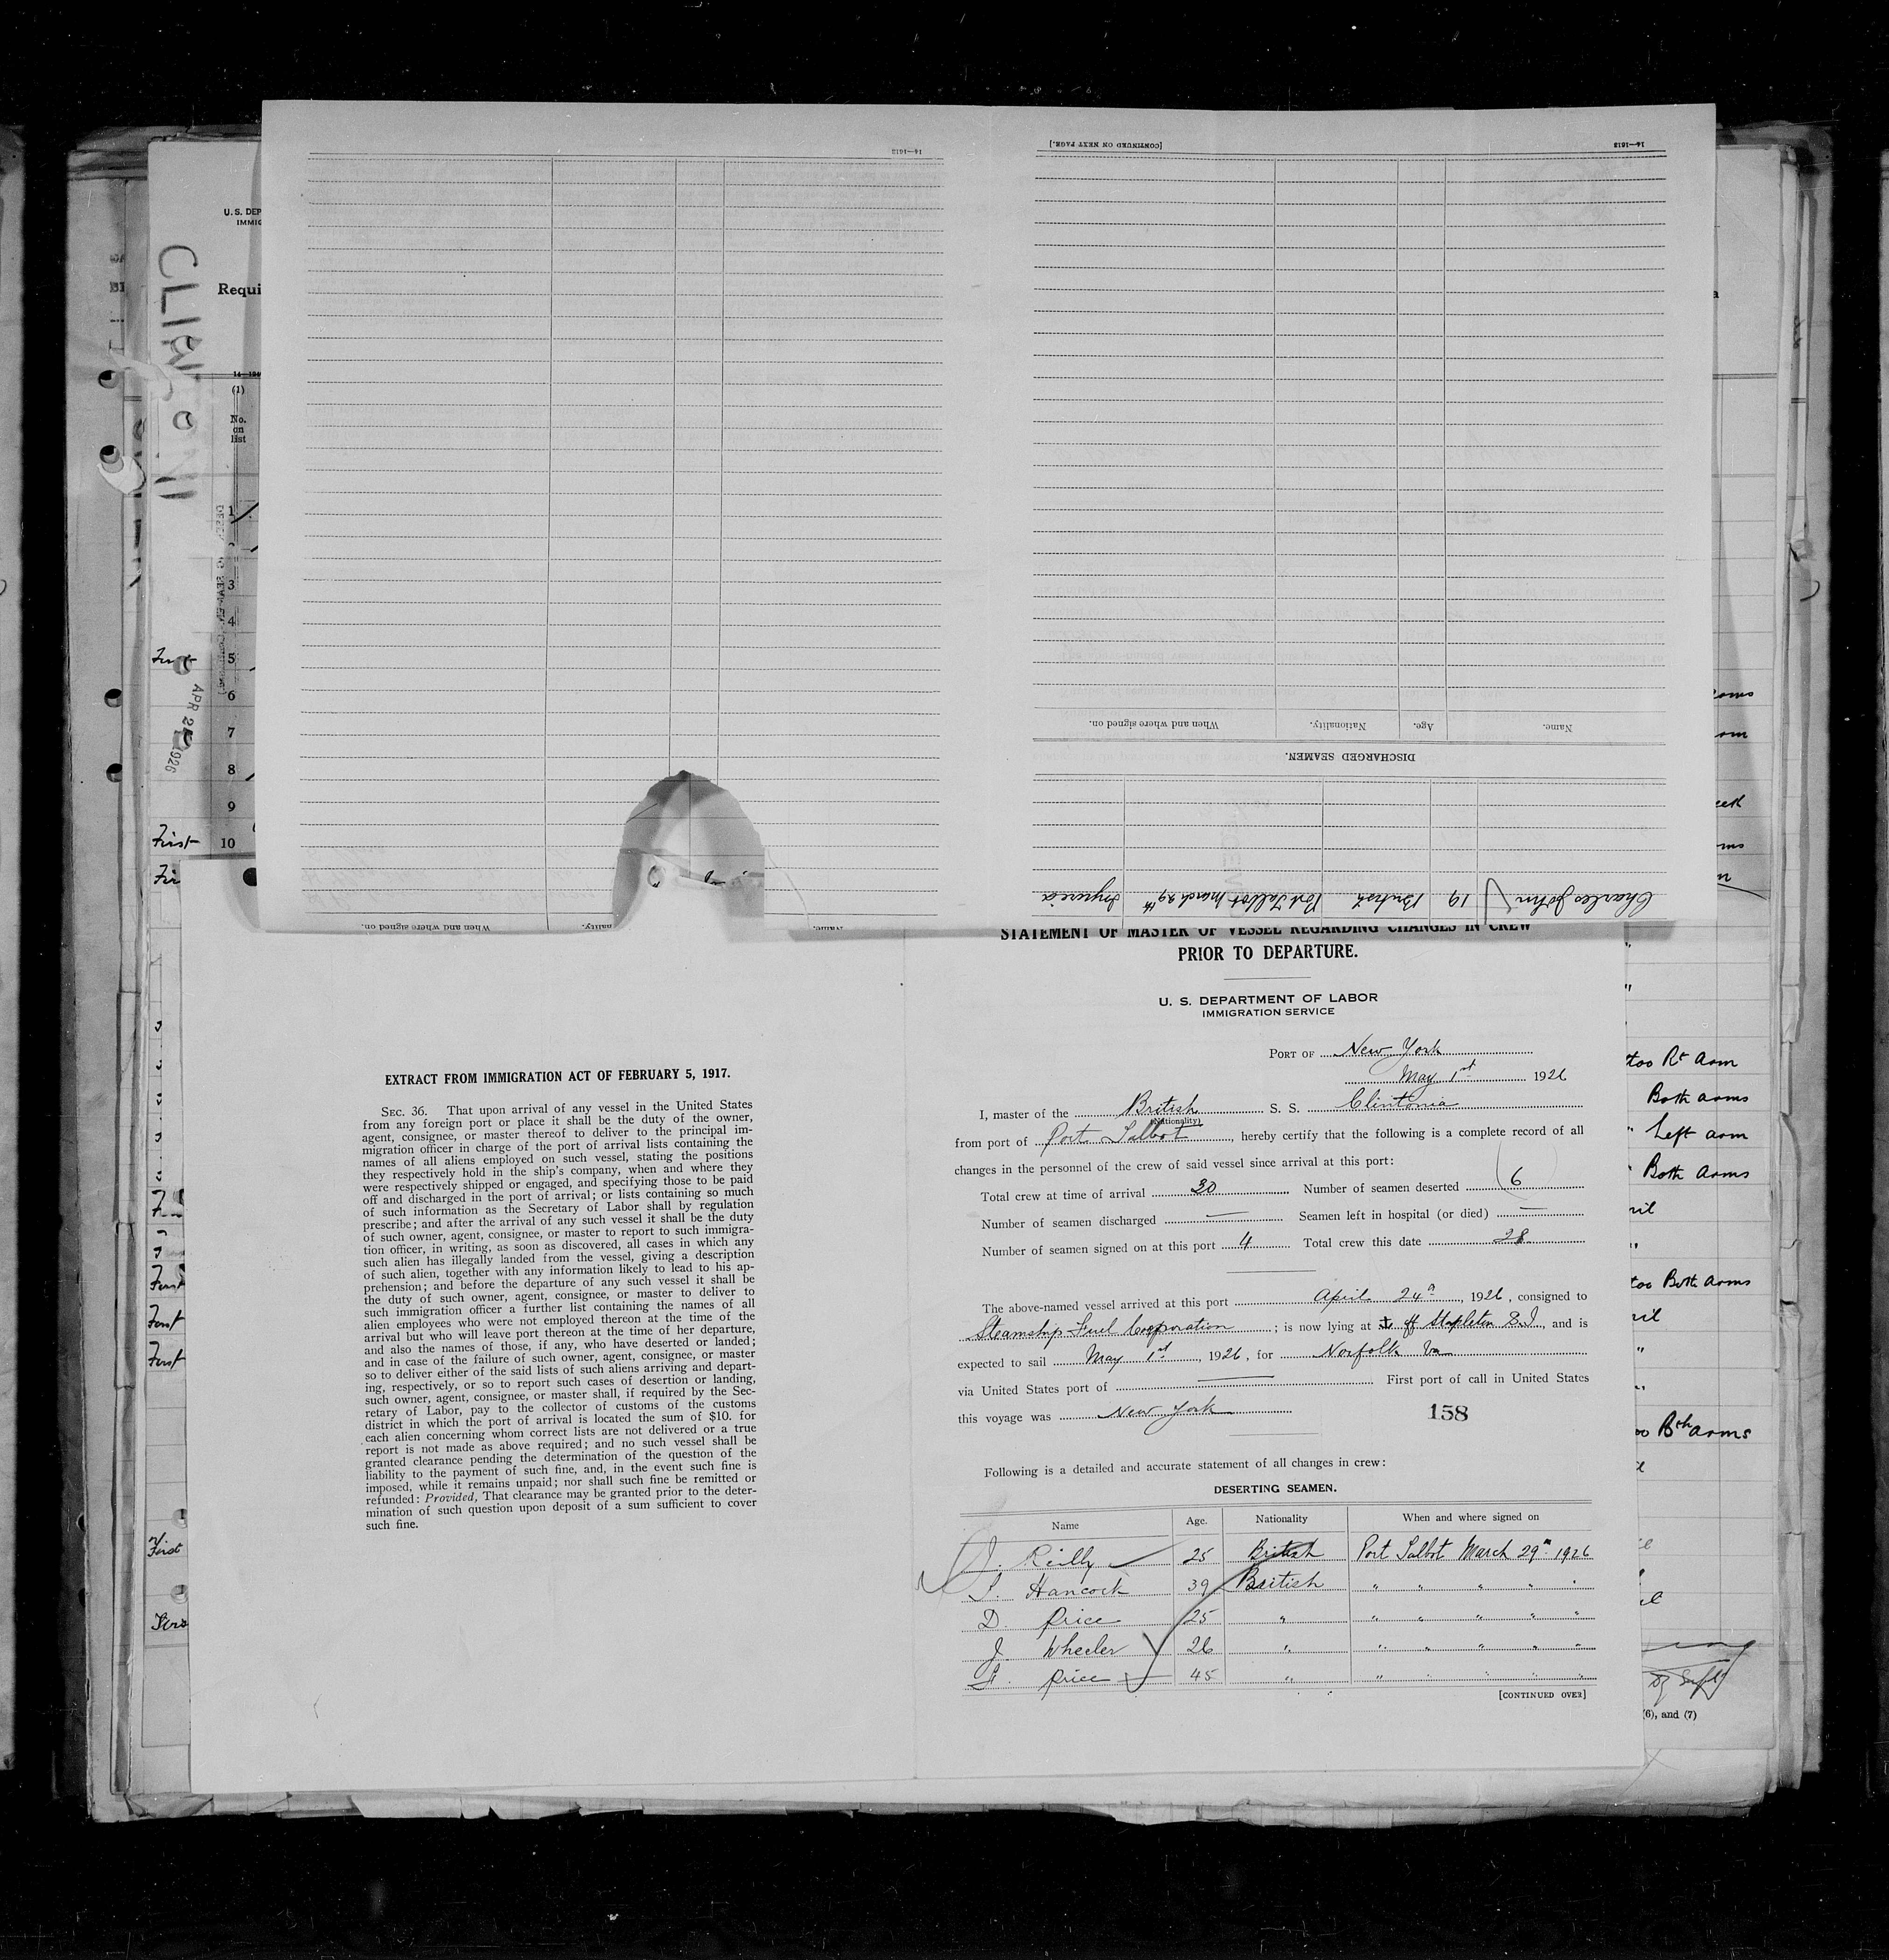 [CONTINUED ON NEXT PAGE.]
14—1613
14—1613
When and where signed on.
Nationality.
Age.
Name.
DISCHARGED SEAMEN.
Charles John 19 British Port Talbot March 29th
When and where signed on.
U. S. DEP
IMMIG
CLINTONIA
Requi
(1)
No.
on
list
1
3
4
5
6
7
8
9
10
First
First
APR 24 1926
STATEMENT OF MASTER OF VESSEL REGARDING CHANGES IN CREW
PRIOR TO DEPARTURE.
U. S. DEPARTMENT OF LABOR
IMMIGRATION SERVICE
PORT OF New York
May 1st 1926
I, master of the British S. S. Clintonia
(Nationality)
from port of Port Talbot, hereby certify that the following is a complete record of all
changes in the personnel of the crew of said vessel since arrival at this port:
Total crew at time of arrival 30 Number of seamen deserted 6
Number of seamen discharged — Seamen left in hospital (or died) —
Number of seamen signed on at this port 4 Total crew this date 28
The above-named vessel arrived at this port April 24th, 1926, consigned to
Steamship Fuel Corporation; is now lying at off Stapleton S.I., and is
expected to sail May 1st, 1926, for Norfolk Va
via United States port of — First port of call in United States
this voyage was New York
158
Following is a detailed and accurate statement of all changes in crew:
DESERTING SEAMEN.
Name Age. Nationality When and where signed on
J. Reilly 25 British Port Talbot March 29th 1926
Hancock 39 British " " " " "
D. Price 25 " " " " " "
J. Wheeler 26 " " " " " "
Price 45 " " " " " "
[CONTINUED OVER]
EXTRACT FROM IMMIGRATION ACT OF FEBRUARY 5, 1917.
SEC. 36. That upon arrival of any vessel in the United States
from any foreign port or place it shall be the duty of the owner,
agent, consignee, or master thereof to deliver to the principal im-
migration officer in charge of the port of arrival lists containing the
names of all aliens employed on such vessel, stating the positions
they respectively hold in the ship's company, when and where they
were respectively shipped or engaged, and specifying those to be paid
off and discharged in the port of arrival; or lists containing so much
of such information as the Secretary of Labor shall by regulation
prescribe; and after the arrival of any such vessel it shall be the duty
of such owner, agent, consignee, or master to report to such immigra-
tion officer, in writing, as soon as discovered, all cases in which any
such alien has illegally landed from the vessel, giving a description
of such alien, together with any information likely to lead to his ap-
prehension; and before the departure of any such vessel it shall be
the duty of such owner, agent, consignee, or master to deliver to
such immigration officer a further list containing the names of all
alien employees who were not employed thereon at the time of the
arrival but who will leave port thereon at the time of her departure,
and also the names of those, if any, who have deserted or landed;
and in case of the failure of such owner, agent, consignee, or master
so to deliver either of the said lists of such aliens arriving and depart-
ing, respectively, or so to report such cases of desertion or landing,
such owner, agent, consignee, or master shall, if required by the Sec-
retary of Labor, pay to the collector of customs of the customs
district in which the port of arrival is located the sum of $10. for
each alien concerning whom correct lists are not delivered or a true
report is not made as above required; and no such vessel shall be
granted clearance pending the determination of the question of the
liability to the payment of such fine, and, in the event such fine is
imposed, while it remains unpaid; nor shall such fine be remitted or
refunded: Provided, That clearance may be granted prior to the deter-
mination of such question upon deposit of a sum sufficient to cover
such fine.
First
First
First
First
too Rt arm
Both arms
" Left arm
" Both arms
too Both arms
Bth arms
(6), and (7)